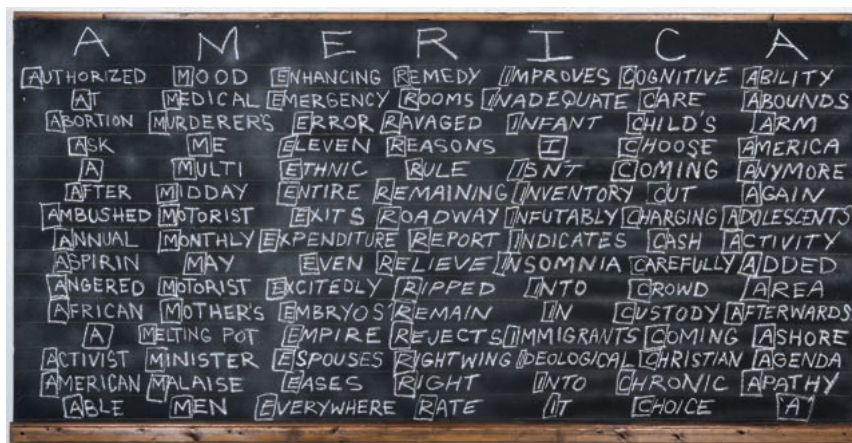 A M E R I C A
AUTHORIZED MOOD ENHANCING REMEDY IMPROVES COGNITIVE ABILITY
AT MEDICAL EMERGENCY ROOMS INADEQUATE CARE ABOUNDS
ABORTION MURDERER'S ERROR RAVAGED INFANT CHILD'S ARM
ASK ME ELEVEN REASONS I CHOOSE AMERICA
A MULTI ETHNIC RULE ISNT COMING ANYMORE
AFTER MIDDAY ENTIRE REMAINING INVENTORY CUT AGAIN
AMBUSHED MOTORIST EXITS ROADWAY INFUTABLY CHARGING ADOLESCENTS
ANNUAL MONTHLY EXPENDITURE REPORT INDICATES CASH ACTIVITY
ASPIRIN MAY EVEN RELIEVE INSOMNIA CAREFULLY ADDED
ANGERED MOTORIST EXCITEDLY RIPPED INTO CROWD AREA
AFRICAN MOTHER'S EMBRYOS' REMAIN IN CUSTODY AFTERWARDS
A MELTING POT EMPIRE REJECTS IMMIGRANTS COMING ASHORE
ACTIVIST MINISTER ESPOUSES RIGHTWING IDEOLOGICAL CHRISTIAN AGENDA
AMERICAN MALAISE EASES RIGHT INTO CHRONIC APATHY
ABLE MEN EVERYWHERE RATE IT CHOICE 'A'